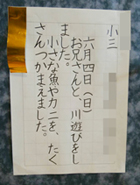 小三
六月四日（日）
お兄さんと、川遊びをし
ました。
小さな魚やカニを、たく
さんつかまえました。